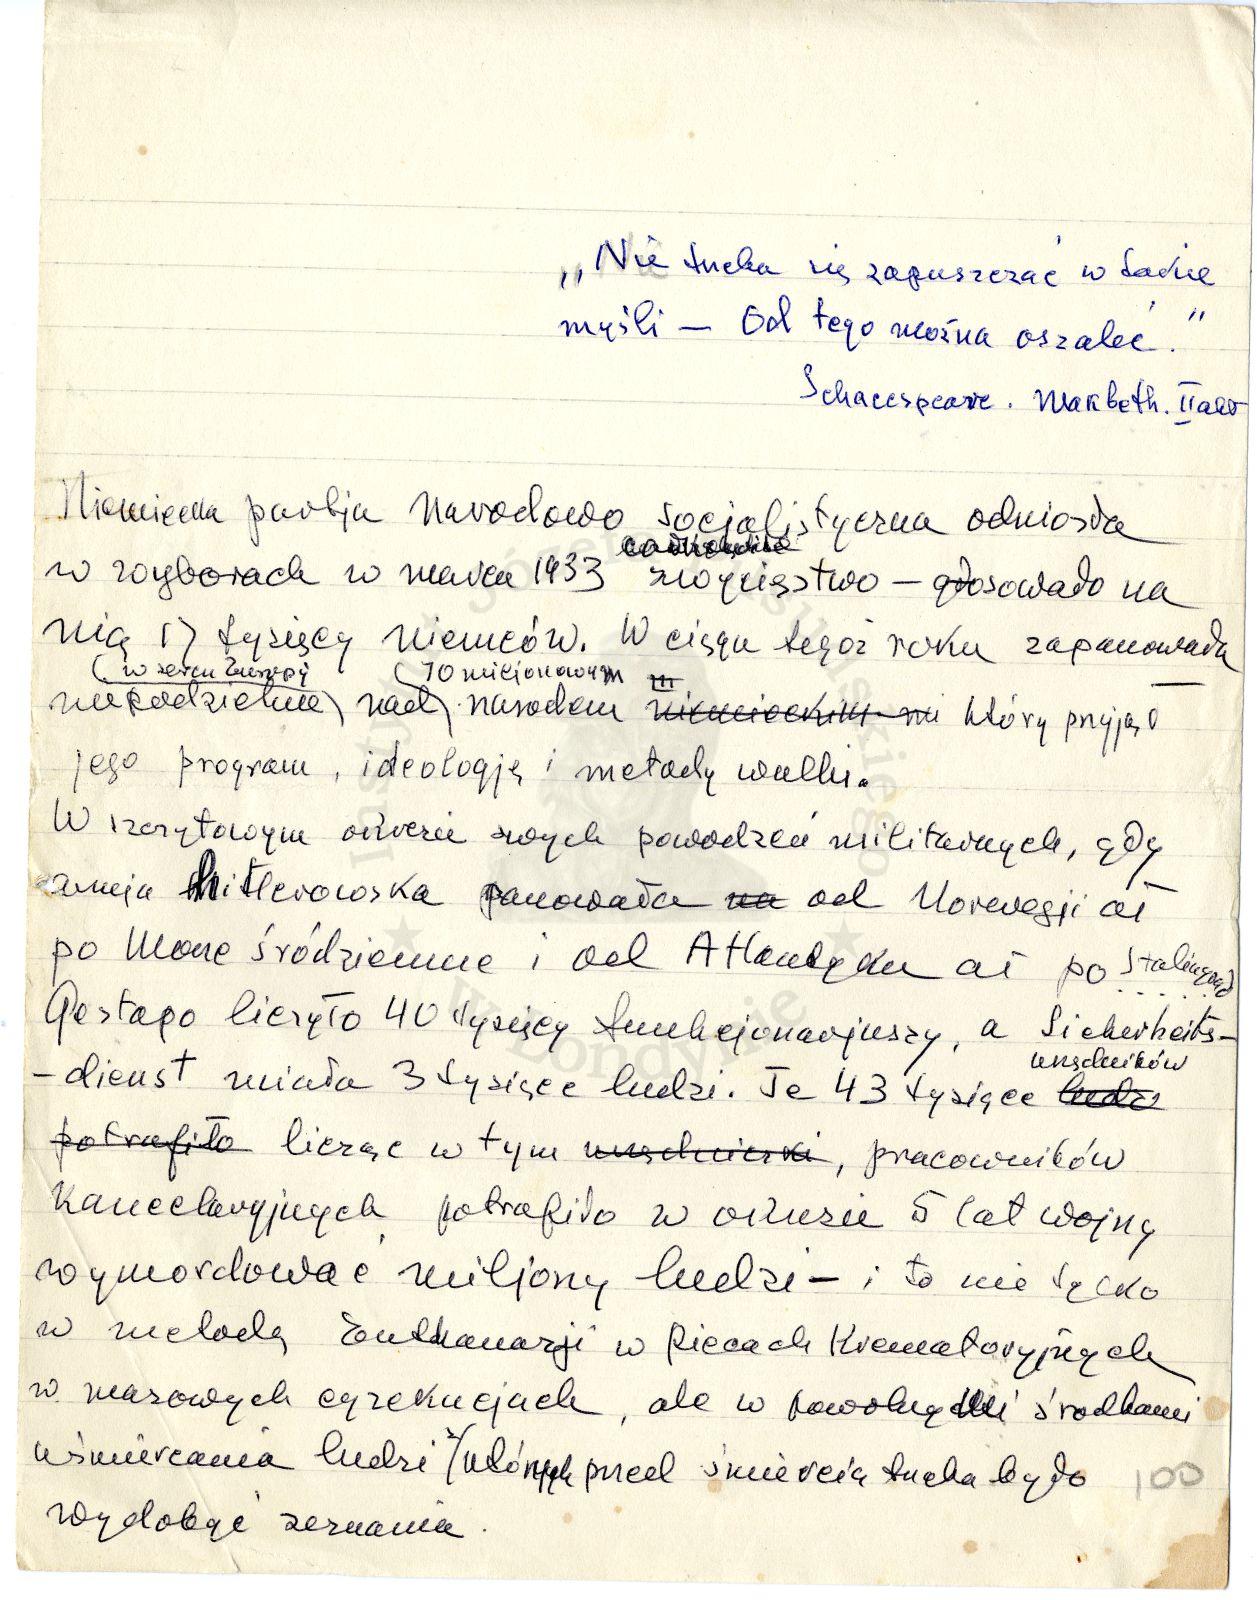 „Nie trzeba się zapuszczać w takie
myśli — Od tego można oszaleć."
Schacespeare. Makbeth. II akt
Niemiecka partja narodowo socjalistyczna odniosła
w wyborach w marcu 1933 całkowite zwycięstwo — głosowało na
nią 17 tysięcy niemców. W ciągu tegoż roku zapanowała
(w sercu Europy (70 miljonowym
niepodzielnie) nad) narodem niemieckim który przyjął
jego program, ideologję i metody walki.
W szczytowym okresie swych powodzeń militarnych, gdy
armja hitlerowska panowała na od Norwegji aż
po Morze śródziemne i od Atlantyku aż po Stalingrad
Gestapo liczyło 40 tysięcy funkcjonarjuszy, a Sicherheits-
urzędników
-dienst miała 3 tysiące ludzi. Te 43 tysiące ludzi
potrafiło licząc w tym urzędniczki, pracowników
kancelaryjnych potrafiło w okresie 5 lat wojny
wymordować miljony ludzi — i to nie tylko
w metodą Euthanazji w piecach Krematoryjnych
w masowych egzekucjach, ale w powolnymi środkami
uśmiercania ludzi z których przed śmiercią trzeba było
wydobyć zeznania.
100
Instytut Józefa Piłsudskiego
w Londynie